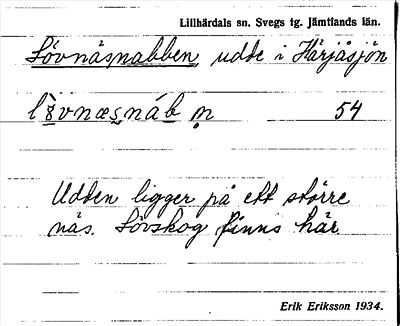 Lillhärdals sn. Svegs tg. Jämtlands län.
Lövnäsnabben, udde i Härjåsjön
54
Udden ligger på ett större
näs. Lövskog finns här.
Erik Eriksson 1934.